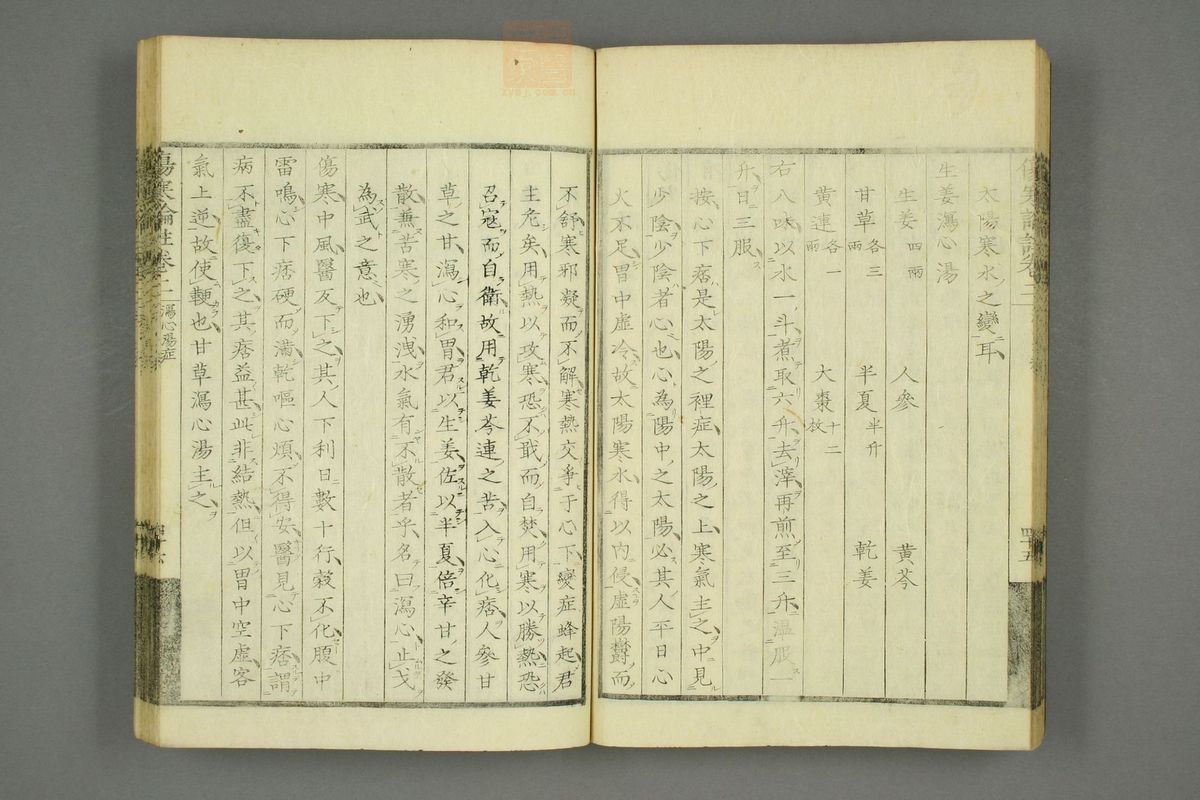 太陽寒水之變耳
生姜瀉心湯
生姜四兩 人參 黃芩
甘草各三兩 半夏半升 乾姜
黃連各一兩 大棗十二枚
右八味以水一斗煮取六升去滓再煎至三升溫服一
升日三服
按心下痞是太陽之裡症太陽之上寒氣主之中見
少陰少陰者心也心為陽中之太陽必其人平日心
火不足胃中虛冷故太陽寒水得以內侵虛陽鬱而
不舒寒邪凝而不解寒熱交爭于心下變症蜂起君
主危矣用熱以攻寒恐不戢而自焚用寒以勝熱恐
召寇而自衛故用乾姜芩連之苦入心化痞人參甘
草之甘瀉心和胃君以生姜佐以半夏倍辛甘之發
散兼苦寒之湧洩水氣有不散者乎名曰瀉心止戈
為武之意也
傷寒中風醫反下之其人下利日數十行穀不化腹中
雷鳴心下痞硬而滿乾嘔心煩不得安醫見心下痞謂
病不盡復下之其痞益甚此非結熱但以胃中空虛客
氣上逆故使鞕也甘草瀉心湯主之
傷寒論註卷二 瀉心湯症
zysj.com.cn